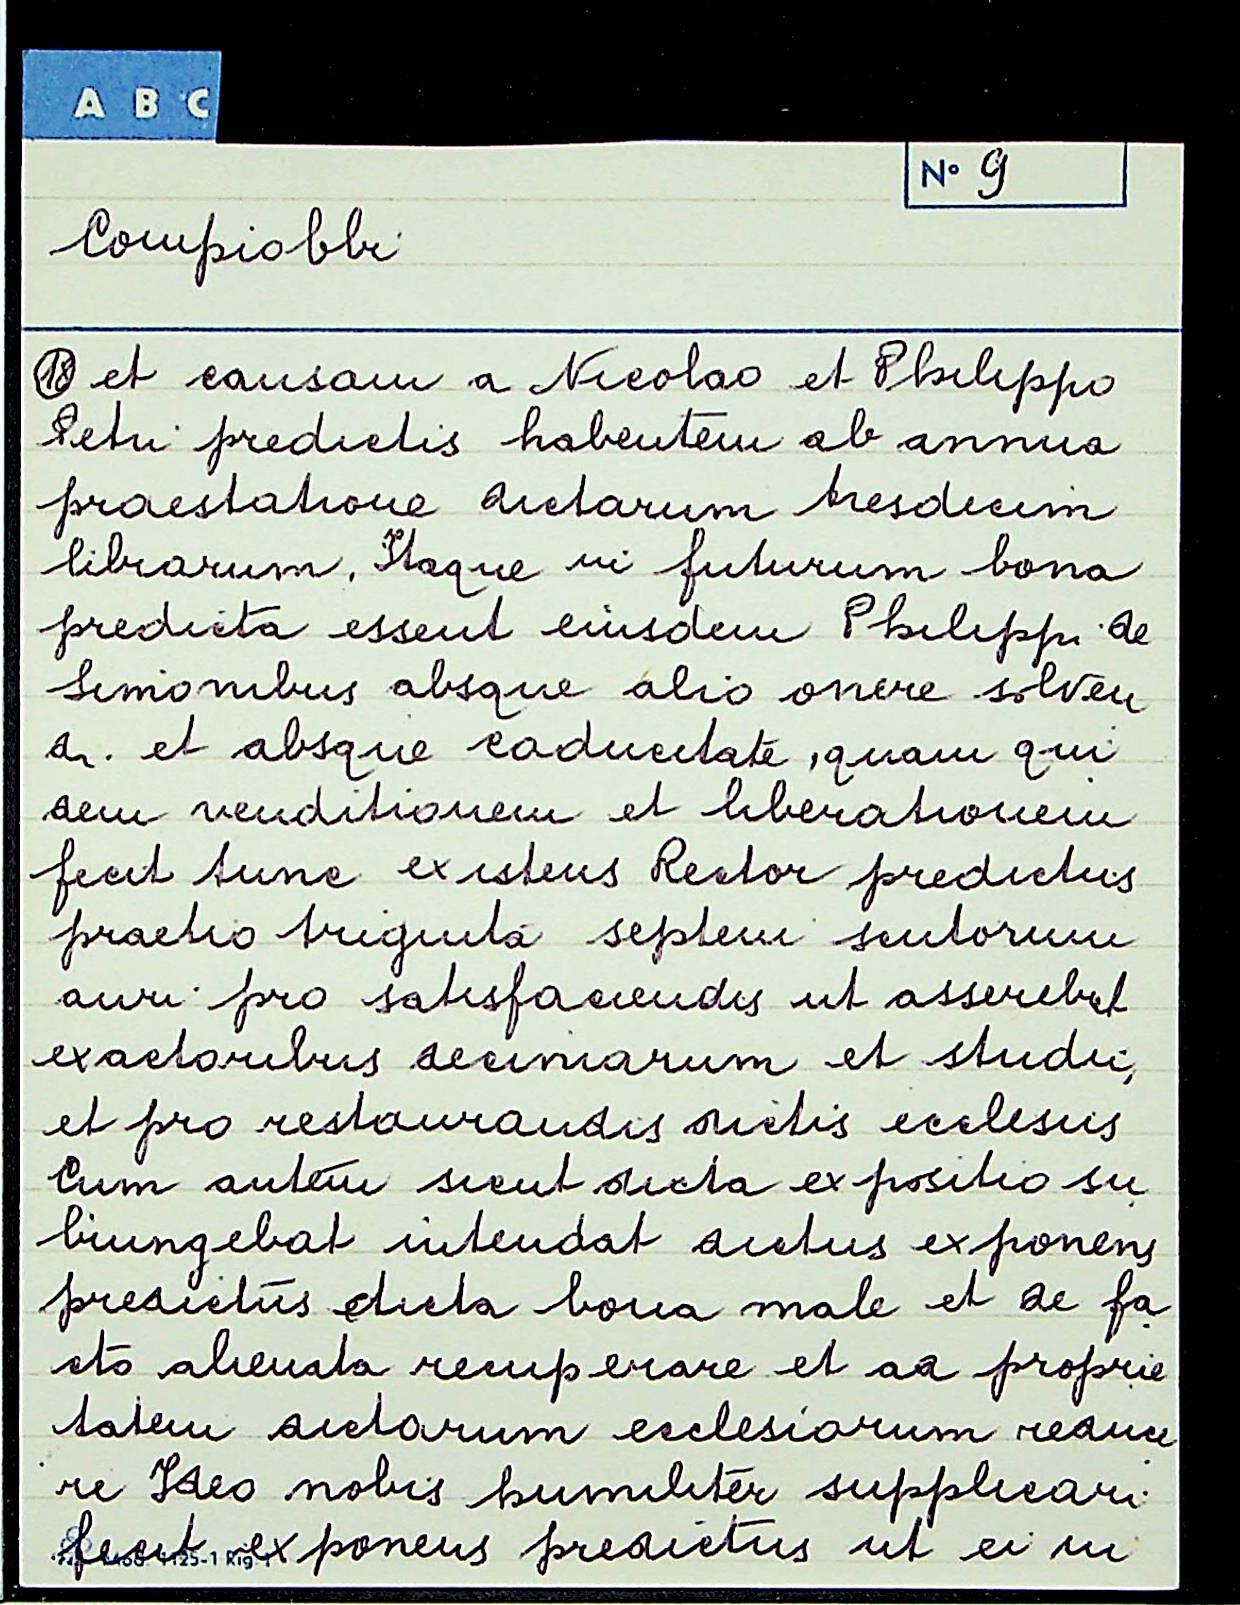 A B C
N° 9
Compiobbi
18 et causam a Nicolao et Philippo
Petri predictis habentem ab annua
praestatione dictarum tresdecim
librarum. Itaque in futurum bona
predicta essent eiusdem Philippi de
Simonibus absque alio onere solven
di. et absque caducitate, quam qui
dem venditionem et liberationem
fecit tunc existens Rector predictus
praetio triginta septem scutorum
auri pro satisfaciendis ut asserebat
exactoribus decimarum et studii,
et pro restaurandis dictis ecclesiis
Cum autem sicut dicta expositio su
biungebat intendat dictus exponens
predictus dicta bona male et de fa
cto alienata recuperare et ad proprie
tatem dictarum ecclesiarum reduce
re Ideo nobis humiliter supplicari
fecit exponens predictus ut ei in
Mod. 1125-1 Rig.